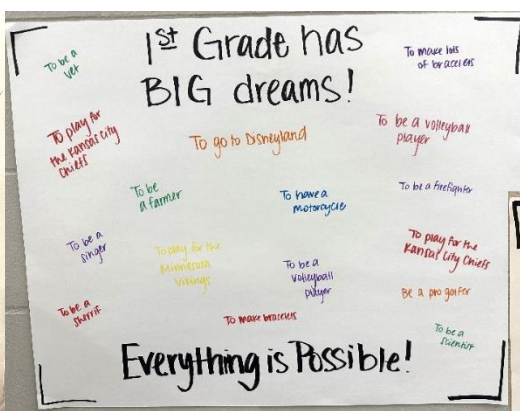 1st Grade has
BIG dreams!
To be a
vet
To make lots
of bracelets
To play for
the Kansas City
Chiefs
To go to Disneyland
To be a volleyball
player
To be
a farmer
To have a
motorcycle
To be a firefighter
To be a
singer
To play for the
Minnesota
Vikings
To be a
volleyball
player
To play for the
Kansas City Chiefs
Be a pro golfer
To be a
sherrif
To make bracelets
To be a
scientist
Everything is Possible!